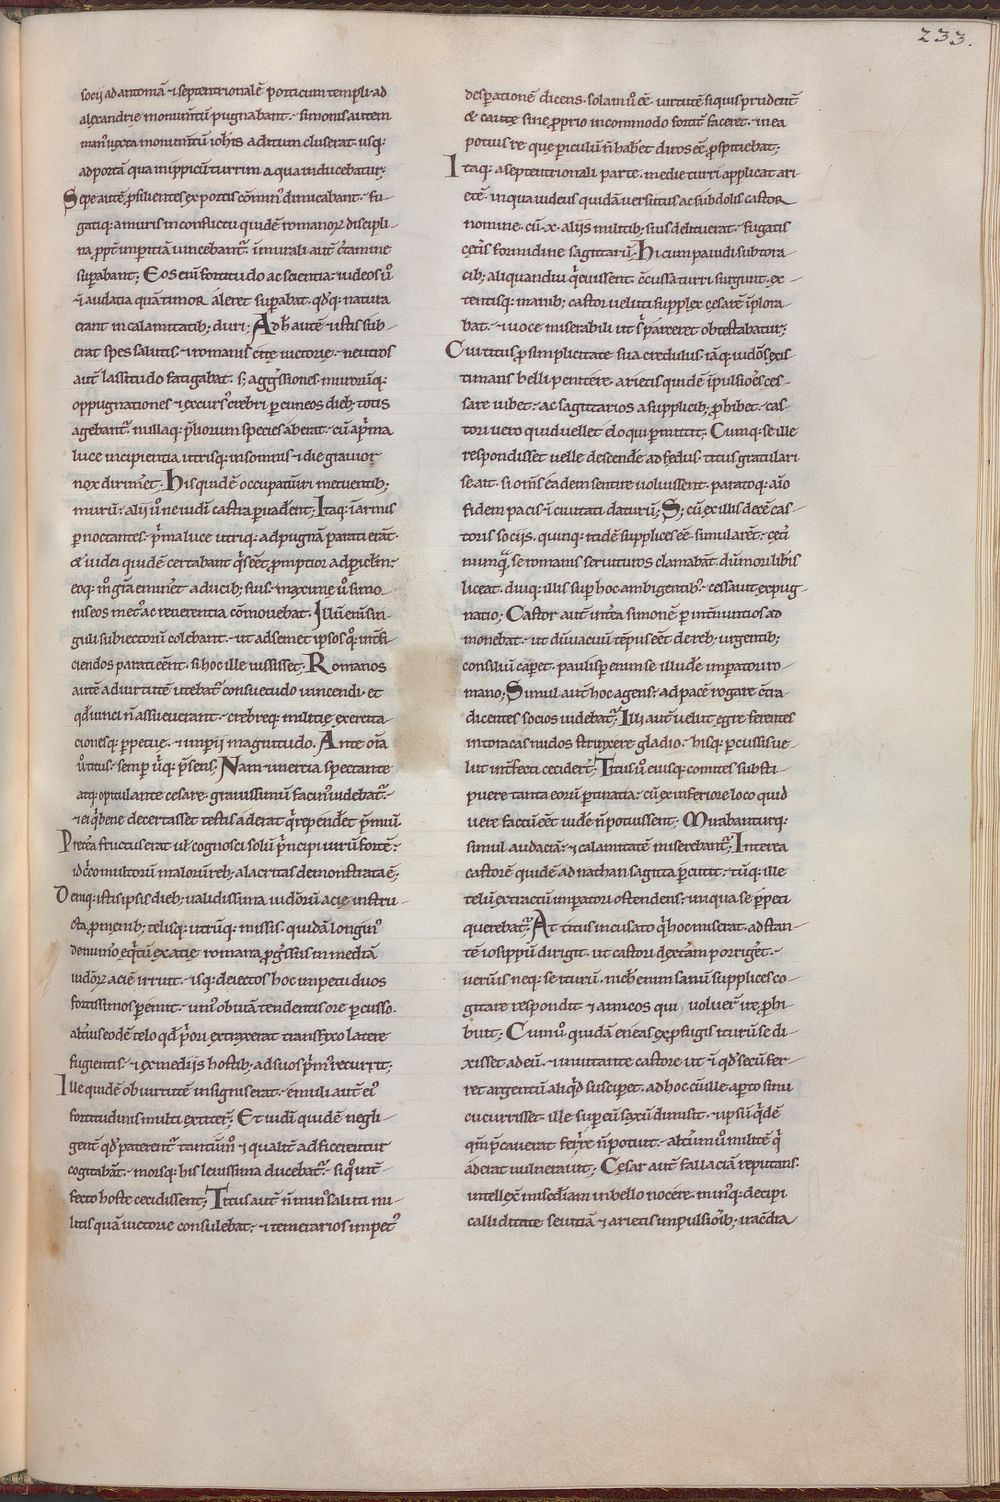 233.
socii ad antoniā ⁊ septentrionalē porticum templi· ad
alexandrie monum̄tū pugnabant·⁊ simonis autem
man⁹ iuxta monum̄tū ioh̄is aditum cluserat usq;
ad portā qua in yppicū turrim aqua inducebatur;
Sepe autē p̄silientes ex portis cōmin⁹ dimicabant·⁊ fu-
gatiq; a muris in conflictu quidē romanoꝝ discipli-
na ꝓpt̄ imp̄itiā uincebant᷑· in murali aut̄ c̄tamine
sup̄abant; Eos enī fortitudo ac scientia· iudeos ů
⁊ audatia quā timor aleret sup̄abat· qd̓q; natura
erant in calamitatib; duri; Ad h̄ autē istis sub-
erat spes salutis·⁊ romanis cite uictorie·⁊ neutros
aut̄ lassitudo fatigabat· s; agg̓ssiones· muroruq;
oppugnationes ⁊ excurs⁹ crebri ꝑ cuneos dieb; totis
agebant᷑· nullaq; p̄liorum species aberat·⁊ cū a p̓ma
luce incipientia utrisq; insomnis·⁊ die grauior
nox dirim̄et; His quidē occupatūri metuentib;
murū· alii ů ne iudei castra ꝑuad̄ent; Itaq; in armis
ꝑnoctantes·⁊ p̓ma luce utriq; ad pugnā parati erāt·
& iudei quidē certabant q̓s eēt ꝓmptior ad pericl̄m·
eoq; m̊ gr̄am emin̄et a ducib; suis·⁊ maxime ů simo-
nis eos met⁹ ac reuerentia cōmouebat· Illū enī sin-
guli subiectorū colebant·⁊ ut ad semet ipsos q̊; int̄fi-
ciendos parati eēnt· si hoc ille iussisset; Romanos
autē ad uirtutē utebat᷑ consuetudo uincendi· et
qd̓ uinci n̄ assueuerant·⁊ crebreq; militie exercita-
cionesq; ꝑpetue·⁊ imꝑii magnitudo· Ante om̄a
ů titus·⁊ semꝑ ub̓q; p̄sens; Nam inertia spectante
atq; opitulante cesare· grauissimū facin⁹ uidebat᷑·
⁊ ei q̓ bene decertasset testis aderat q̓ rependēt p̄miū·
Pret̄ea fructus erat ut̄ cognosci solū p̓ncipi uirū fortē·
idc̓co multorū maiorū reb; alacritas demonstrata ē;
Deniq; istis ipsis dieb; ualidissima iudeorū acie instru-
cta ꝓ menib; telisq; utrūq; missis· quidā longin⁹
de num̓o eq̓tū ex acie romana ꝓg̓ssus in mediā
iudeoꝝ aciē irruit·⁊ isq; deiectos hoc impetu duos
fortissimos ꝑemit·⁊ uni⁹ obuiā tendentis ore ꝑcusso·
alti⁹ eodē telo qd̓ p̓ori extraxerat transfixo latere
fugientis·⁊ ex mediis hostib; ad suos p̓m⁹ recurrit;
Ille quidē ob uirtutē insignis erat·⁊ emuli aut̄ ei⁹
fortitudinis multi extiter̄; Et iudi quidē negli-
gent̄ qd̓ paterent᷑ tantūm̊ ⁊ qualit̄ adficerentur
cogitabāt·⁊ morsq; his leuissima ducebat᷑·⁊ si q̊ int̄-
fecto hoste cecidissent; Titus aut̄ n̄ min⁹ saluti mi-
litis quā uictorie consulebat·⁊ ⁊ temerarios impet⁹
desꝑationē dicens· solam ů eē· uirtutē siquis prudent̄
& caute sine ꝓprio incommodo fortit̄ faceret·⁊ in ea
potius re que periculū n̄ hab̄et diros eē ꝓspitiebat;
Itaq; a septentrionali parte· medie turri applicat ari-
etē· in qua iudeus quidā uersutus ac subdolis castor
nomine· cū ·x· aliis militib; suis delituerat·⁊ fugatis
cet̄is formidine sagittarū; Hi cum paudi sub tora-
cib; aliquandiu q̓euissent· c̄cussa turri surgunt· ex-
tentisq; manib; castor ueluti supplex cesarē īplora-
bat·⁊ uoce miserabili ut s̓ parceret obtestabatur;
Cui titus ꝓ simplicitate sua credulus· iāq; iudeos exis-
timans belli penitere· arietis quidē īpulsiōes ces-
sare iubet·⁊ ac sagittarios a supplicib; ꝓhibet·⁊ cas-
tori uero quid uellet eloqui ꝑmittit; Cumq; se ille
respondisset uelle descend̄e ad fedus· titus gratulari
se ait· si om̄s eadem sentire uoluissent· paratoq; aīo
fidem pacis· ī ciuitati daturū; S; cū ex illis decē cas-
toris sociis· quinq; itidē supplices eē simularēt·⁊ cet̄i
nunquā se romanis seruituros clamabāt· dū mori lib̓is
liceat· diuq; illis suꝑ hoc ambigentib⁹·⁊ cessauit expug-
natio; Castor aut̄ int̄ea simonē ꝑ int̄nuntios ad-
monebat·⁊ ut dū uacuū temp⁹ eēt de reb; urgentib;
consiliū caꝑet· paulisꝑ enim se illud̄e impatori ro-
mano; Simul aut̄ hoc agens·⁊ ad pacē rogare c̄tra-
dicentes socios uidebat᷑; Illi aut̄ uelut egre ferentes
in toracas nudos strinxere gladio·⁊ hisq; ꝑcussis ue-
lut int̄fecti cecider̄; Titus ů eiusq; comites substi-
puere tanta eorū ꝑtinatia·⁊ cū ex inferiore loco quid
uere factū eēt uid̄e n̄ potuissent·⁊ Mirabanturq;
simul audaciā·⁊ calamitatē miserebant᷑; Interea
castorē quidē ad nathan sagitta ꝑcutit·⁊ tūq; ille
telū extractū imꝑatori ostendens·⁊ iniqua se ꝑpeti
querebat᷑; At titus incusato q̓ hoc miserat· adstan-
tē iosippū dirigit· ut castori dextram porrig̓et·⁊
uerū is neq; se iturū· nich̄ enim sanū supplices co-
gitare respondit·⁊ ⁊ amicos qui uoluer̄ ire ꝓhi-
buit·⁊ Cum ů quidā eneas ex ꝑfugis iturū se di-
xisset ad eū·⁊ inuitante castore ut ī qd̓ secū fer-
ret argentū aliq̓d susciꝑet· ad hoc cū ille aꝑto sinu
cucurrisset· ille suꝑ eū saxū dimisit·⁊ ipsū q̓dē
qm̄ p̄cauerat ferire n̄ potuit·⁊ altīum ů militē q̓
aderat uulnerauit; Cesar aut̄ fallaciā reputans·
intellex̄ misc̄diam in bello nocere· min⁹q; decipi
calliditate seuitiā ⁊ arietis impulsiōib; iracūdia